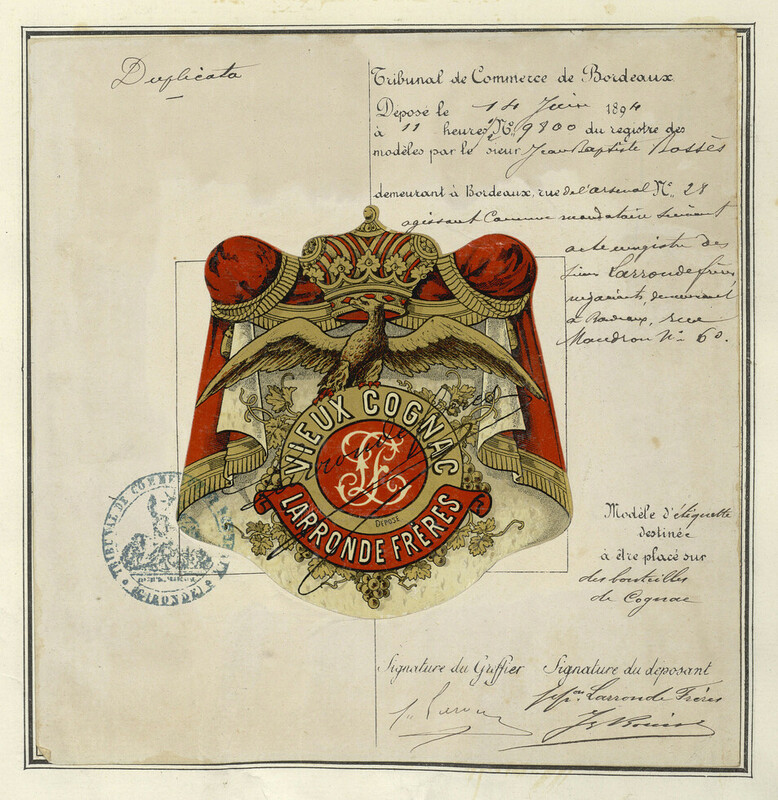 Duplicata
Tribunal de Commerce de Bordeaux
Déposé le 14 Juin 1894
à 11 heures, N° 9800 du registre des
modèles par le sieur Jean Baptiste
demeurant à Bordeaux, rue de l'arsenal N° 28
agissant Comme mandataire suivant
acte enregistré des
sieurs Larronde frères
négociants, demeurant
à Bordeaux, rue
Mandron N° 60.
VIEUX COGNAC
LF
DÉPOSÉ
LARRONDE FRÈRES
TRIBUNAL DE COMMERCE
(GIRONDE)
Modèle d'étiquette
destinée
à être placé sur
des bouteilles
de Cognac
Signature du Greffier Signature du déposant
Larronde Frères